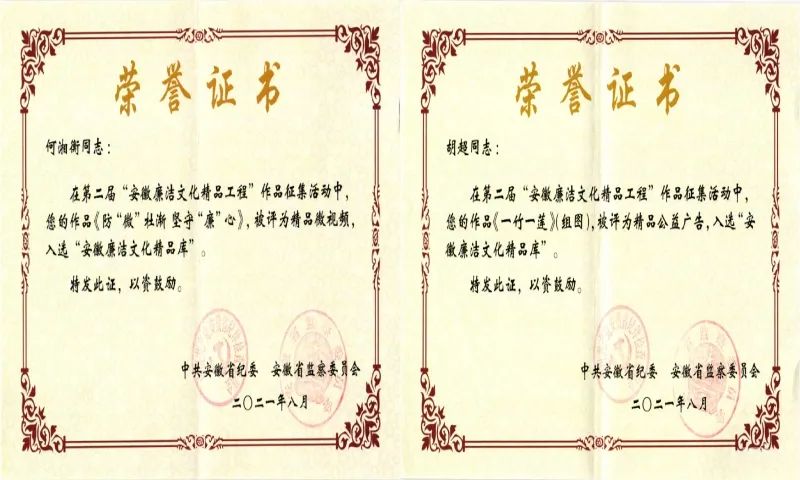 荣誉证书
何湘衡同志：
在第二届“安徽廉洁文化精品工程”作品征集活动中，
您的作品《防“微”杜渐 坚守“廉”心》，被评为精品微视频，
入选“安徽廉洁文化精品库”。
特发此证，以资鼓励。
中共安徽省纪委 安徽省监察委员会
二〇二一年八月
荣誉证书
胡超同志：
在第二届“安徽廉洁文化精品工程”作品征集活动中，
您的作品《一竹一莲》（组图），被评为精品公益广告，入选“安
徽廉洁文化精品库”。
特发此证，以资鼓励。
中共安徽省纪委 安徽省监察委员会
二〇二一年八月